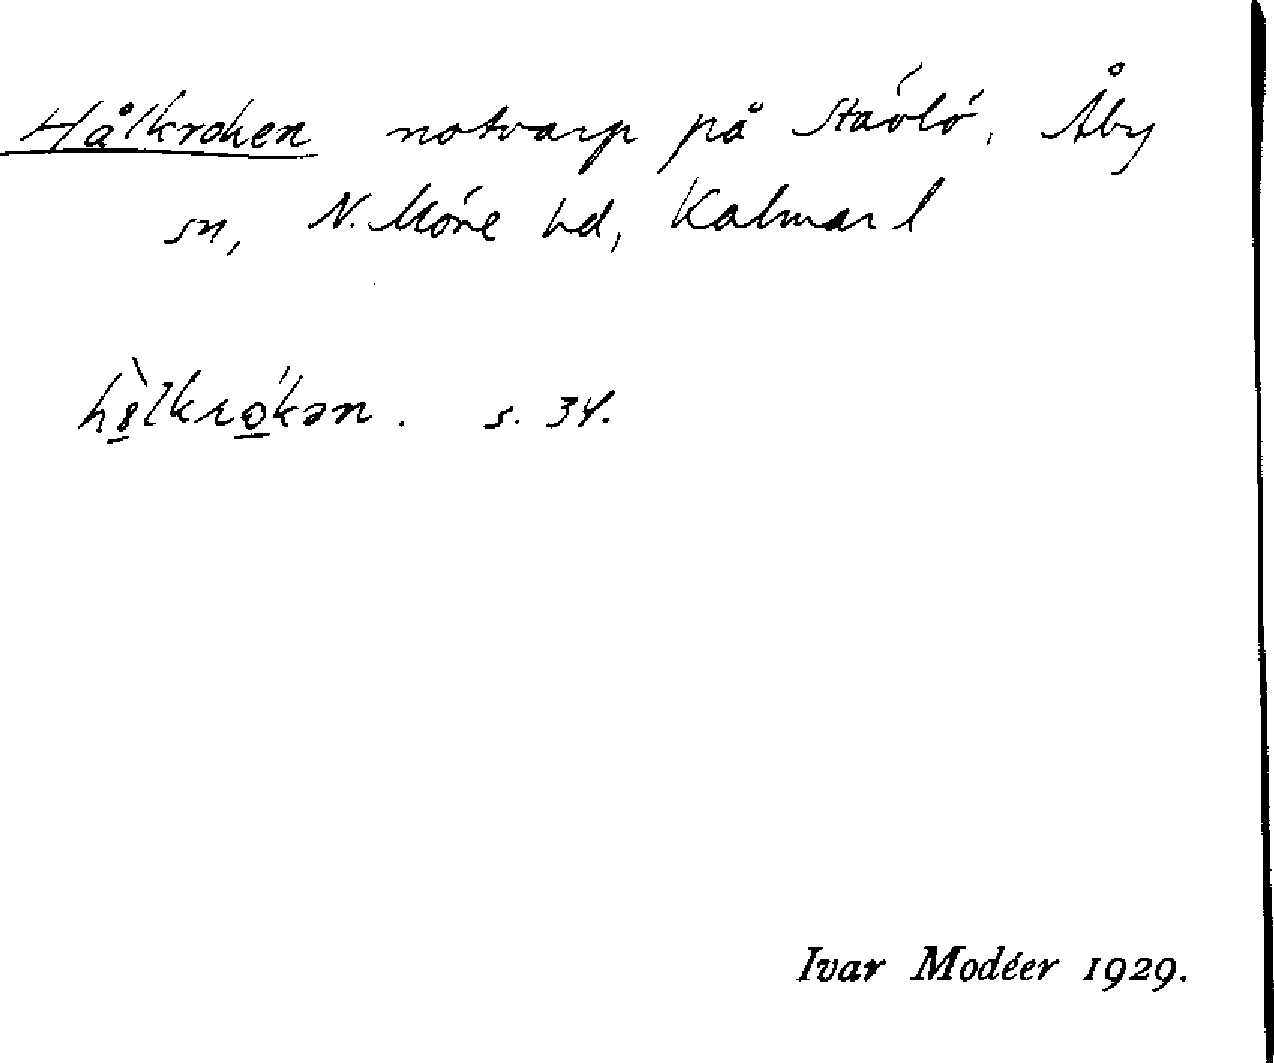 Hålkroken notvarp på Stävlö, Åby
sn, N. Möre hd, Kalmar l
s. 34.
Ivar Modéer 1929.